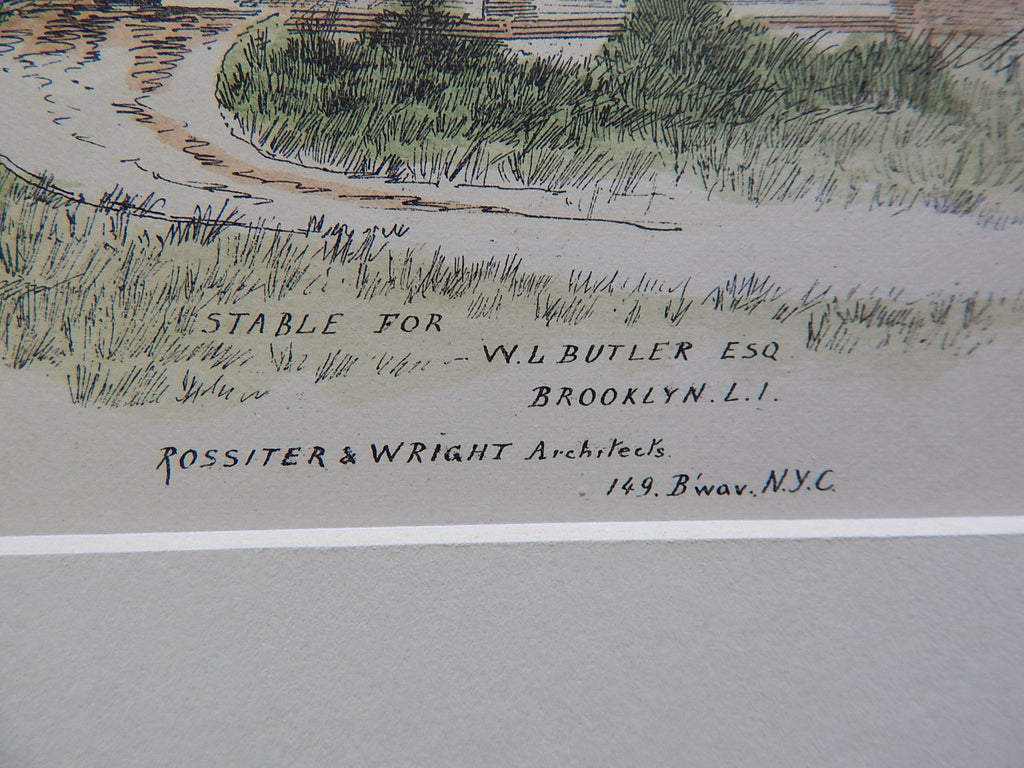 STABLE FOR
W. L BUTLER ESQ
BROOKLYN. L. I.
ROSSITER & WRIGHT Architects.
149. B'way. N.Y.C.